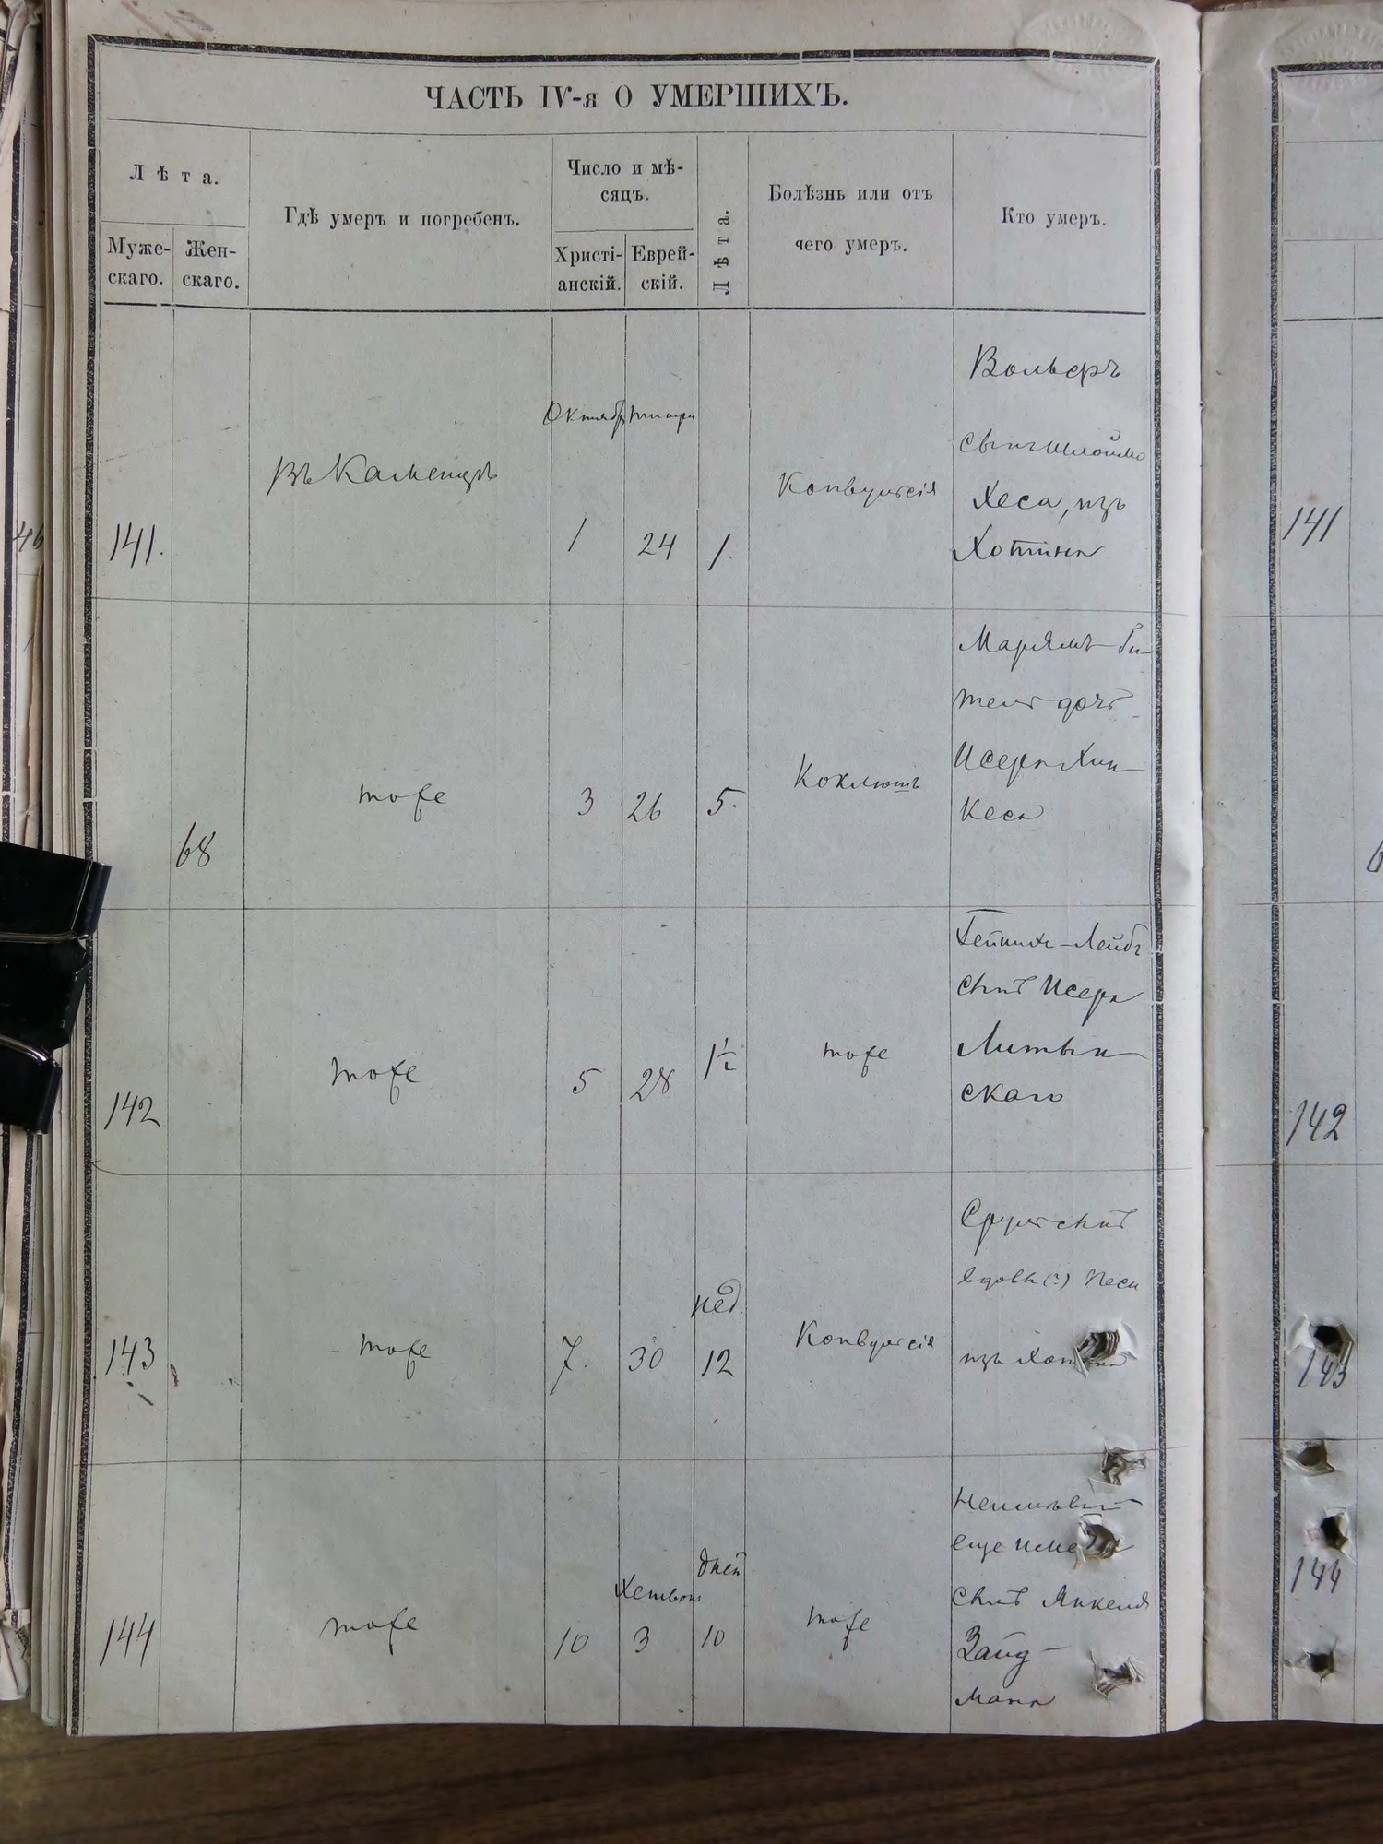 ЧАСТЬ IV-я О УМЕРШИХЪ.
Лѣта.
Мужс-
скаго.
Жен-
скаго.
Гдѣ умеръ и погребенъ.
Число и мѣ-
сяцъ.
Христі-
анскій.
Еврей-
скій.
Лѣта.
Болѣзнь или отъ
чего умеръ.
Кто умеръ.
141.
въ Каменцѣ
Октябр
1
24
1.
Конвульсія
Вольверъ
сынъ Шлоймо
Хеса, изъ
Хотина
68
тоже
3
26
5.
Коклюшъ
Марьямъ-Ги-
тель дочь
Исера Хин-
кеса
142
тоже
5
28
1½
тоже
Гейнихъ-Лейбъ
сынъ Исера
Литвин-
скаго
143
тоже
7.
30
нед.
12
Конвульсія
Сруль сынъ
вдовы (?) Песи
изъ
144
тоже
10
Хешвон
3
дней
10
тоже
еще
сынъ Янкеля
Зайд-
мана
141
142
143
144